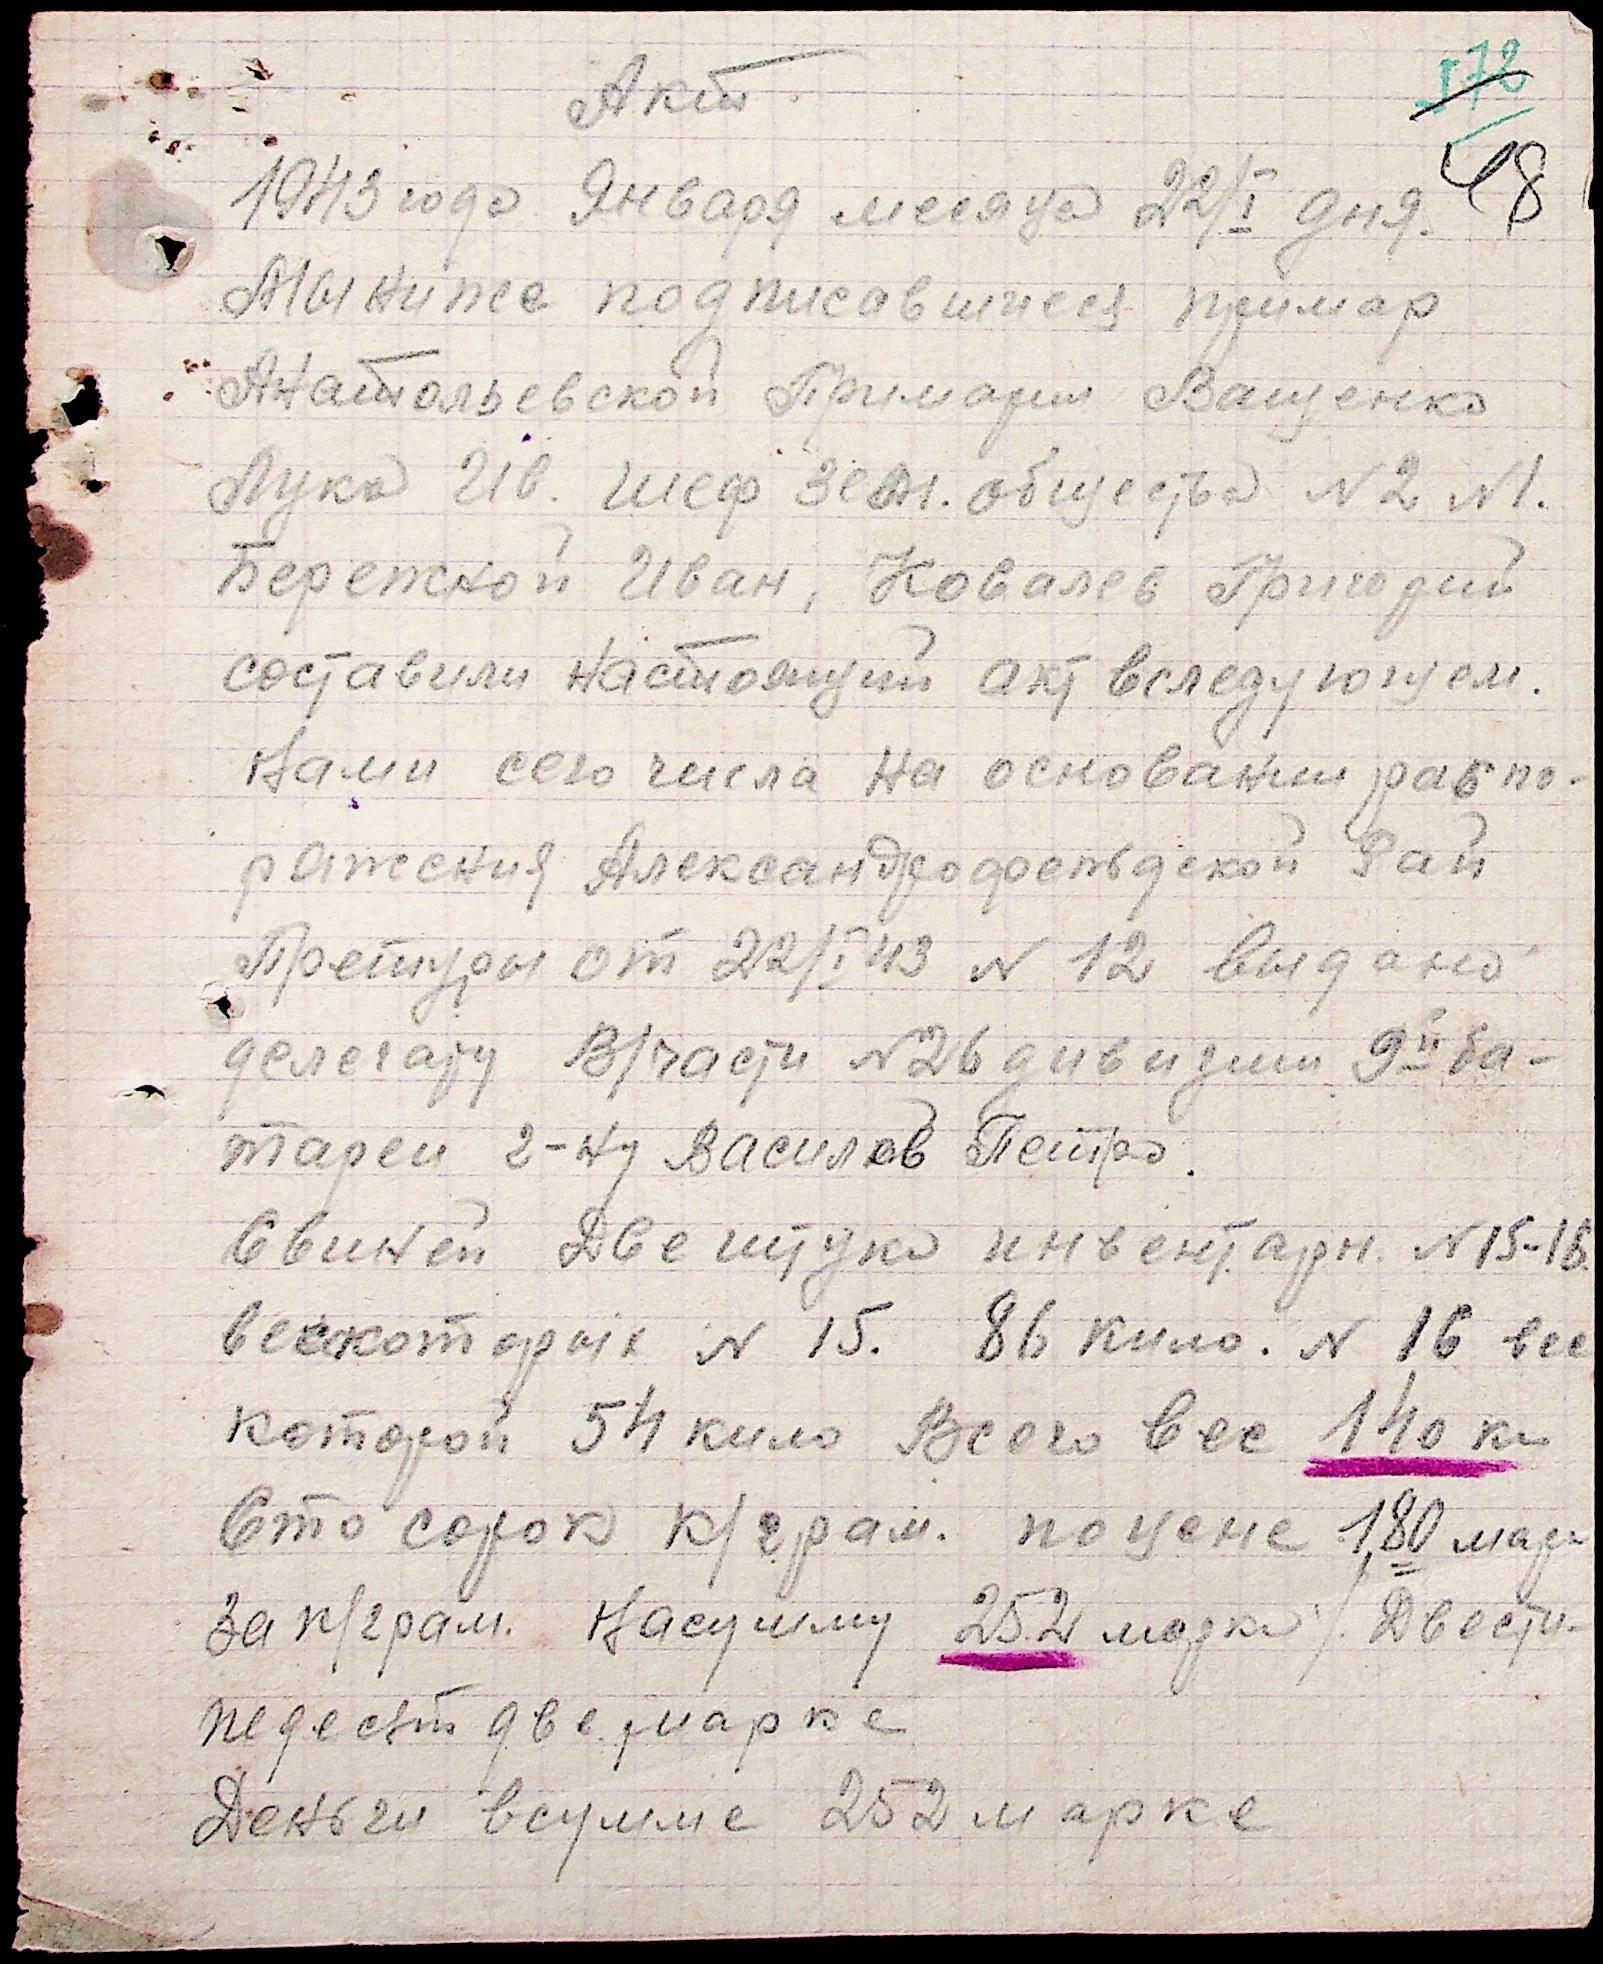 Акт
172
48
1943 года Января месяца 22/I дня.
Мы ниже подписавшиеся примар
Анатольевской Примарии Ващенко
Лука Ив. шеф зем. общества N2 N1.
Бережной Иван, Ковалев Григорий
составили настоящий акт вследующем.
Нами сего числа на основании распо-
ряжения Александродфельдской Рай
Претуры от 22/I 43 N 12 выдано
делегату В/части N26 дивизии 9й ба-
тареи г-ну Василов Петро.
Свиней Две штука инвентарн. N15-16.
вескоторых N 15. 86 кило. N 16 вес
которой 54 кило Всего вес 140 кг
Сто сорок к/грам. по цене 1,80 мар
за к/грам. На сумму 252 марки / Двести-
педесят две марке
Деньги всумме 252 марке